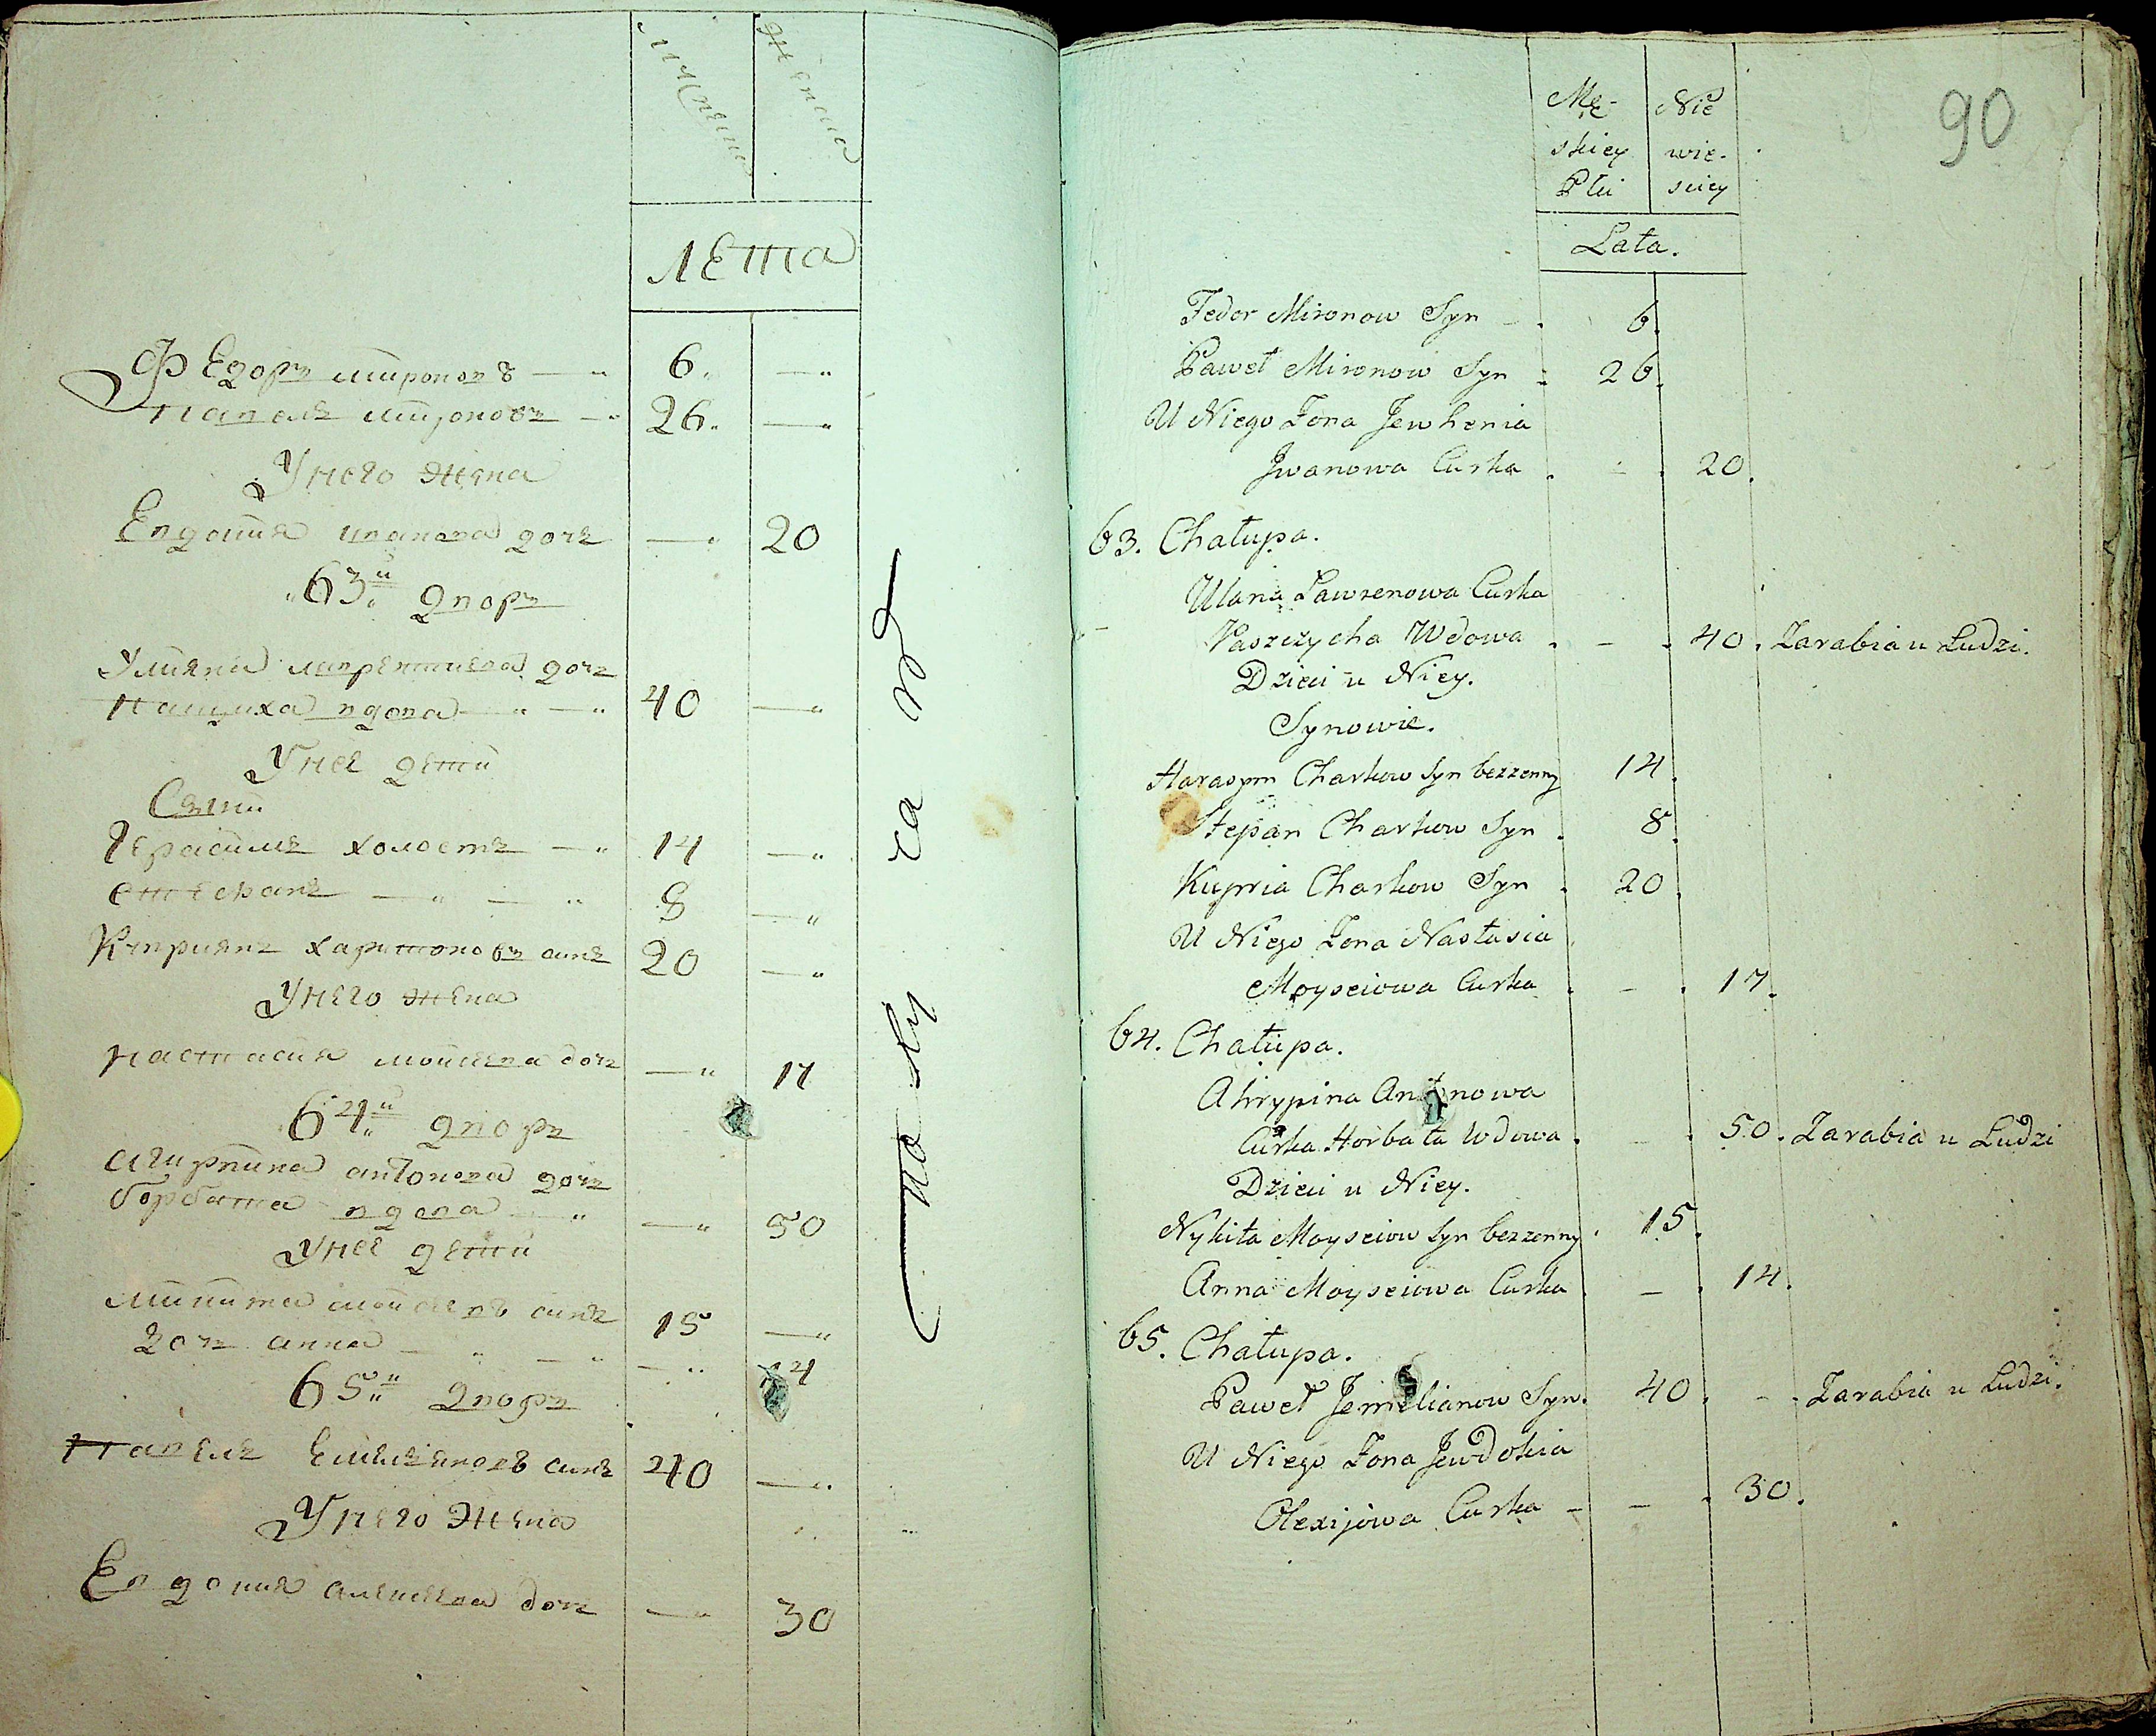 ЛЕта
Федоръ мироновъ — 6. —
павелъ мироновъ — 26. —
У него жена
Евдокия иванова дочь — 20
63й дворъ
Улияна лаврентиева дочь
пащиха вдова — — 40 —
У нее дети
Сыны
Герасимъ холостъ — 14 —
степанъ — — 8 —
Киприянъ харитоновъ сынъ 20 —
У него жена
настасия моисеева дочь — 17
64й дворъ
агирпина антонова дочь
борбатша вдова — — 50
У нее дети
микита моисеевъ сынъ 15 —
дочь анна — — — 14
65й дворъ
павелъ Емельяновъ сынъ 40 —
У него жена
Евдокия алексеева дочь — 30
90
Mę- Nie
skiey wie-
Płci sciey
Lata.
Fedor Mironow Syn - . 6.
Paweł Mironow Syn - 26.
U Niego Zona Jewhenia
Jwanowa Curka . - . 20.
63. Chałupa.
Ulana Lawrenowa Curka
Paszczycha Wdowa . - . 40. Zarabia u Ludzi.
Dzieci u Niey.
Synowie.
Harasym Charkow Syn bezzenny 14.
Stepan Charkow Syn . 8.
Kupria Charkow Syn . 20.
U Niego Zona Nastasia
Moysciowa Curka . - . 17.
64. Chałupa.
Ahrypina Antonowa
Curka Horbata Wdowa . - . 50. Zarabia u Ludzi
Dzieci u Niey.
Nykita Moysciow Syn bezzenny . 15.
Anna Moysciowa Curka . - . 14.
65. Chałupa.
Paweł Jemelianow Syn. 40. - . Zarabia u Ludzi.
U Niego Zona Jewdokia
Olexijowa Curka - - . 30.